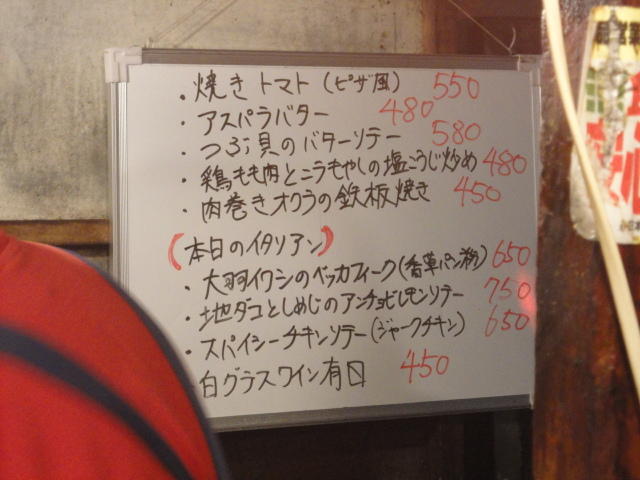 ・焼きトマト(ピザ風) 550
・アスパラバター 480
・つぶ貝のバターソテー 580
・鶏もも肉とニラもやしの塩こうじ炒め 480
・肉巻きオクラの鉄板焼き 450
(本日のイタリアン)
・大羽イワシのベッカフィーク(香草パン粉) 650
・地ダコとしめじのアンチョビレモンソテー 750
・スパイシーチキンソテー(ジャークチキン) 650
・白グラスワイン有〼 450